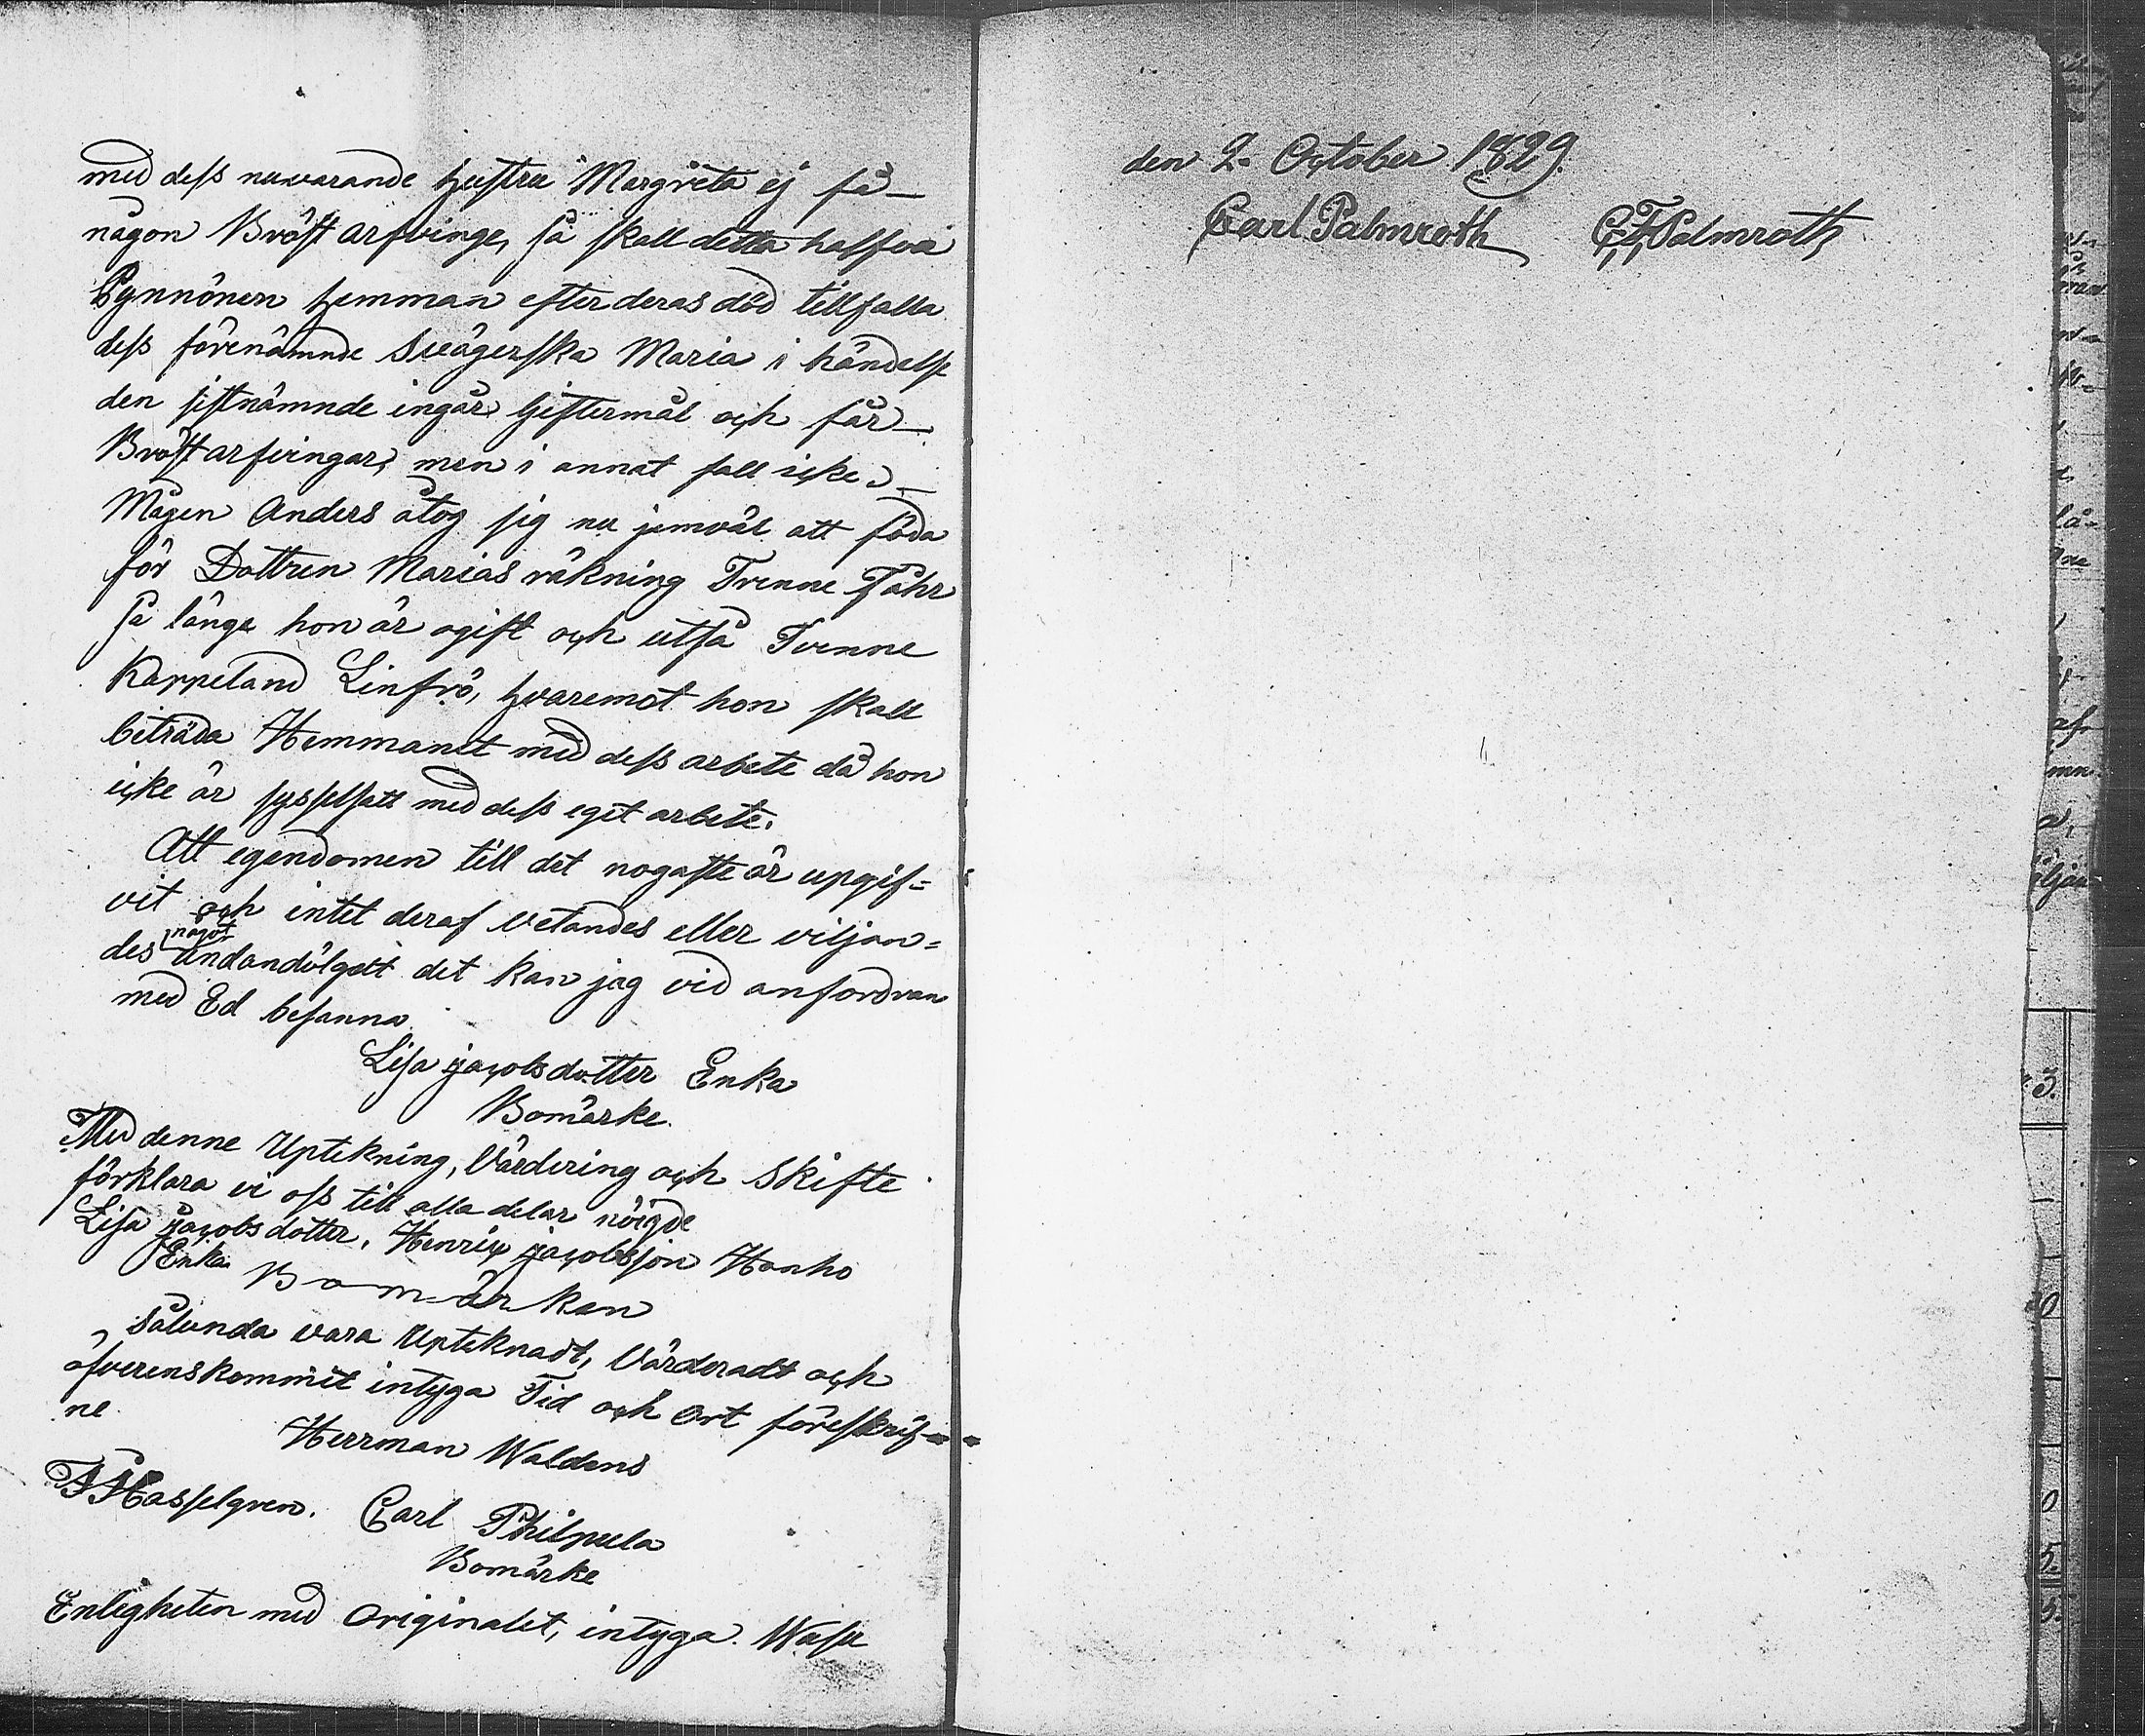 med dess nuvarande hustru Margreta ej få
någon Bröst arfvinge, så skall detta halfva
Pynnönen hemman efter deras död tillfalla
dess förenämnde Svägerska Maria i händelse
den sistnämnde ingår Giftermål och får
Bröst arfvingar, men i annat fall icke.
Mågen Anders åtog sig nu jemväl att föda
för Dottren Marias räkning Trenne Fåhr
så länge hon är ogift och utså Tvenne
Kappeland Linfrö, hvaremot hon skall
beträda Hemmanet med dess arbete då hon
icke är sysselsatt med dess eget arbete.
Att egendomen till det nogaste är uppgif=
vit och intet deraf vetandes eller viljan=
des något undandölgdt det kan jag vid anfordran
med Ed besanna
Lisa Jacobsdotter Enka
Bomärke.
Med denne Uptekning, Värdering och Skifte
förklara vi oss till alla delar nöigde
Lisa Jacobsdotter, Henric Jacobsson Hanho
Enka
Bomärken
Sålunda vara Upteknadt, Värderadt och
öfverenskommit intyga Tid och Ort föreskrif=
ne
Herrman Waldens
F Hasselgren. Carl Philpula
Bomärke
Enligheten med Originalet, intyga. Wasa
den 2. October 1829.
Carl Palmroth C F Palmroth